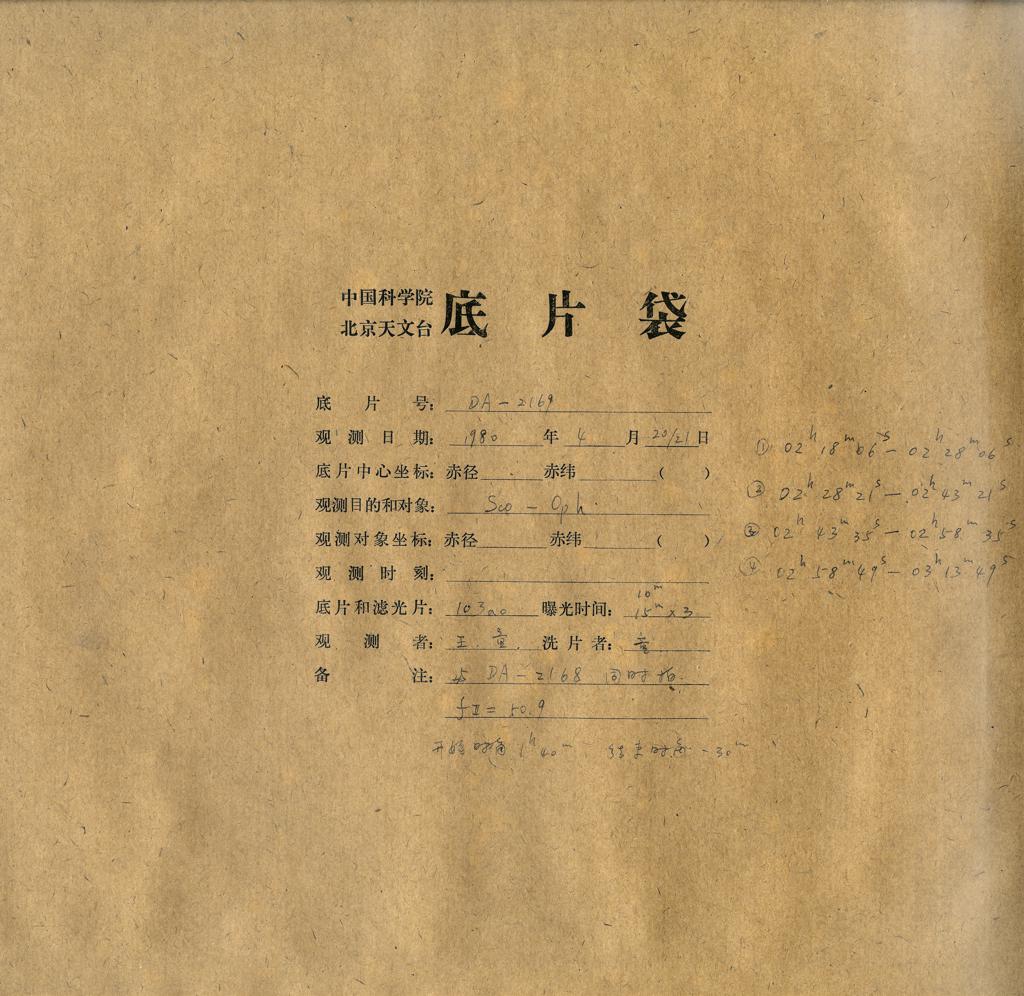 中国科学院
北京天文台
底片袋
底片号: DA-2169
观测日期: 1980年4月20/21日
底片中心坐标: 赤径 赤纬 ( )
观测目的和对象: Sco - Oph
观测对象坐标: 赤径 赤纬 ( )
观测时刻:
10m
底片和滤光片: 103ao 曝光时间: 15m×3
观测者: 王.童. 洗片者: 童
备注: 与 DA-2168 同时拍.
fII = 50.9
开始时角 1h40m 结束时角 -30m
① 02h 18m 06s - 02h 28m 06s
② 02h 28m 21s - 02h 43m 21s
③ 02h 43m 35s - 02h 58m 35s
④ 02h 58m 49s - 03h 13m 49s